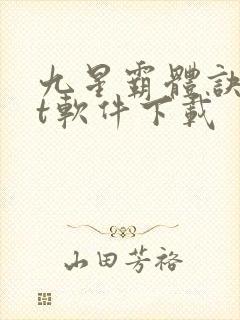 九星霸體訣
t軟件下載
山田芳裕